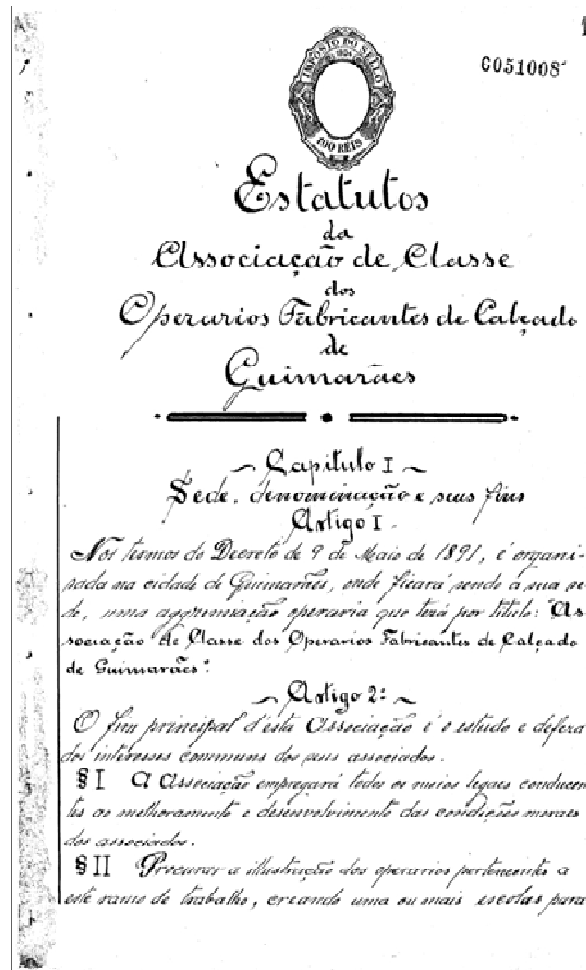 IMPOSTO DO SELLO
100 RÉIS
C051008
1
Estatutos
da
Associação de Classe
dos
Operarios Fabricantes de Calçado
de
Guimarães
Capitulo I
Séde, denominação e seus fins
Artigo I.
Nos termos do Decreto de 9 de Maio de 1891, é organi-
sada na cidade de Guimarães, onde ficará sendo a sua sé-
de, uma aggremiação operaria que terá por titulo: "As
sociação de Classe dos Operarios Fabricantes de Calçado
de Guimarães".
Artigo 2º
O fim principal d'esta Associação é o estudo e defeza
dos interesses communs dos seus associados.
§ I A Associação empregará todos os meios legaes conducen
tes ao melhoramento e desenvolvimento das condições moraes
dos associados.
§ II Procurar a illustração dos operarios pertencentes a
este ramo de trabalho, creando uma ou mais escolas para